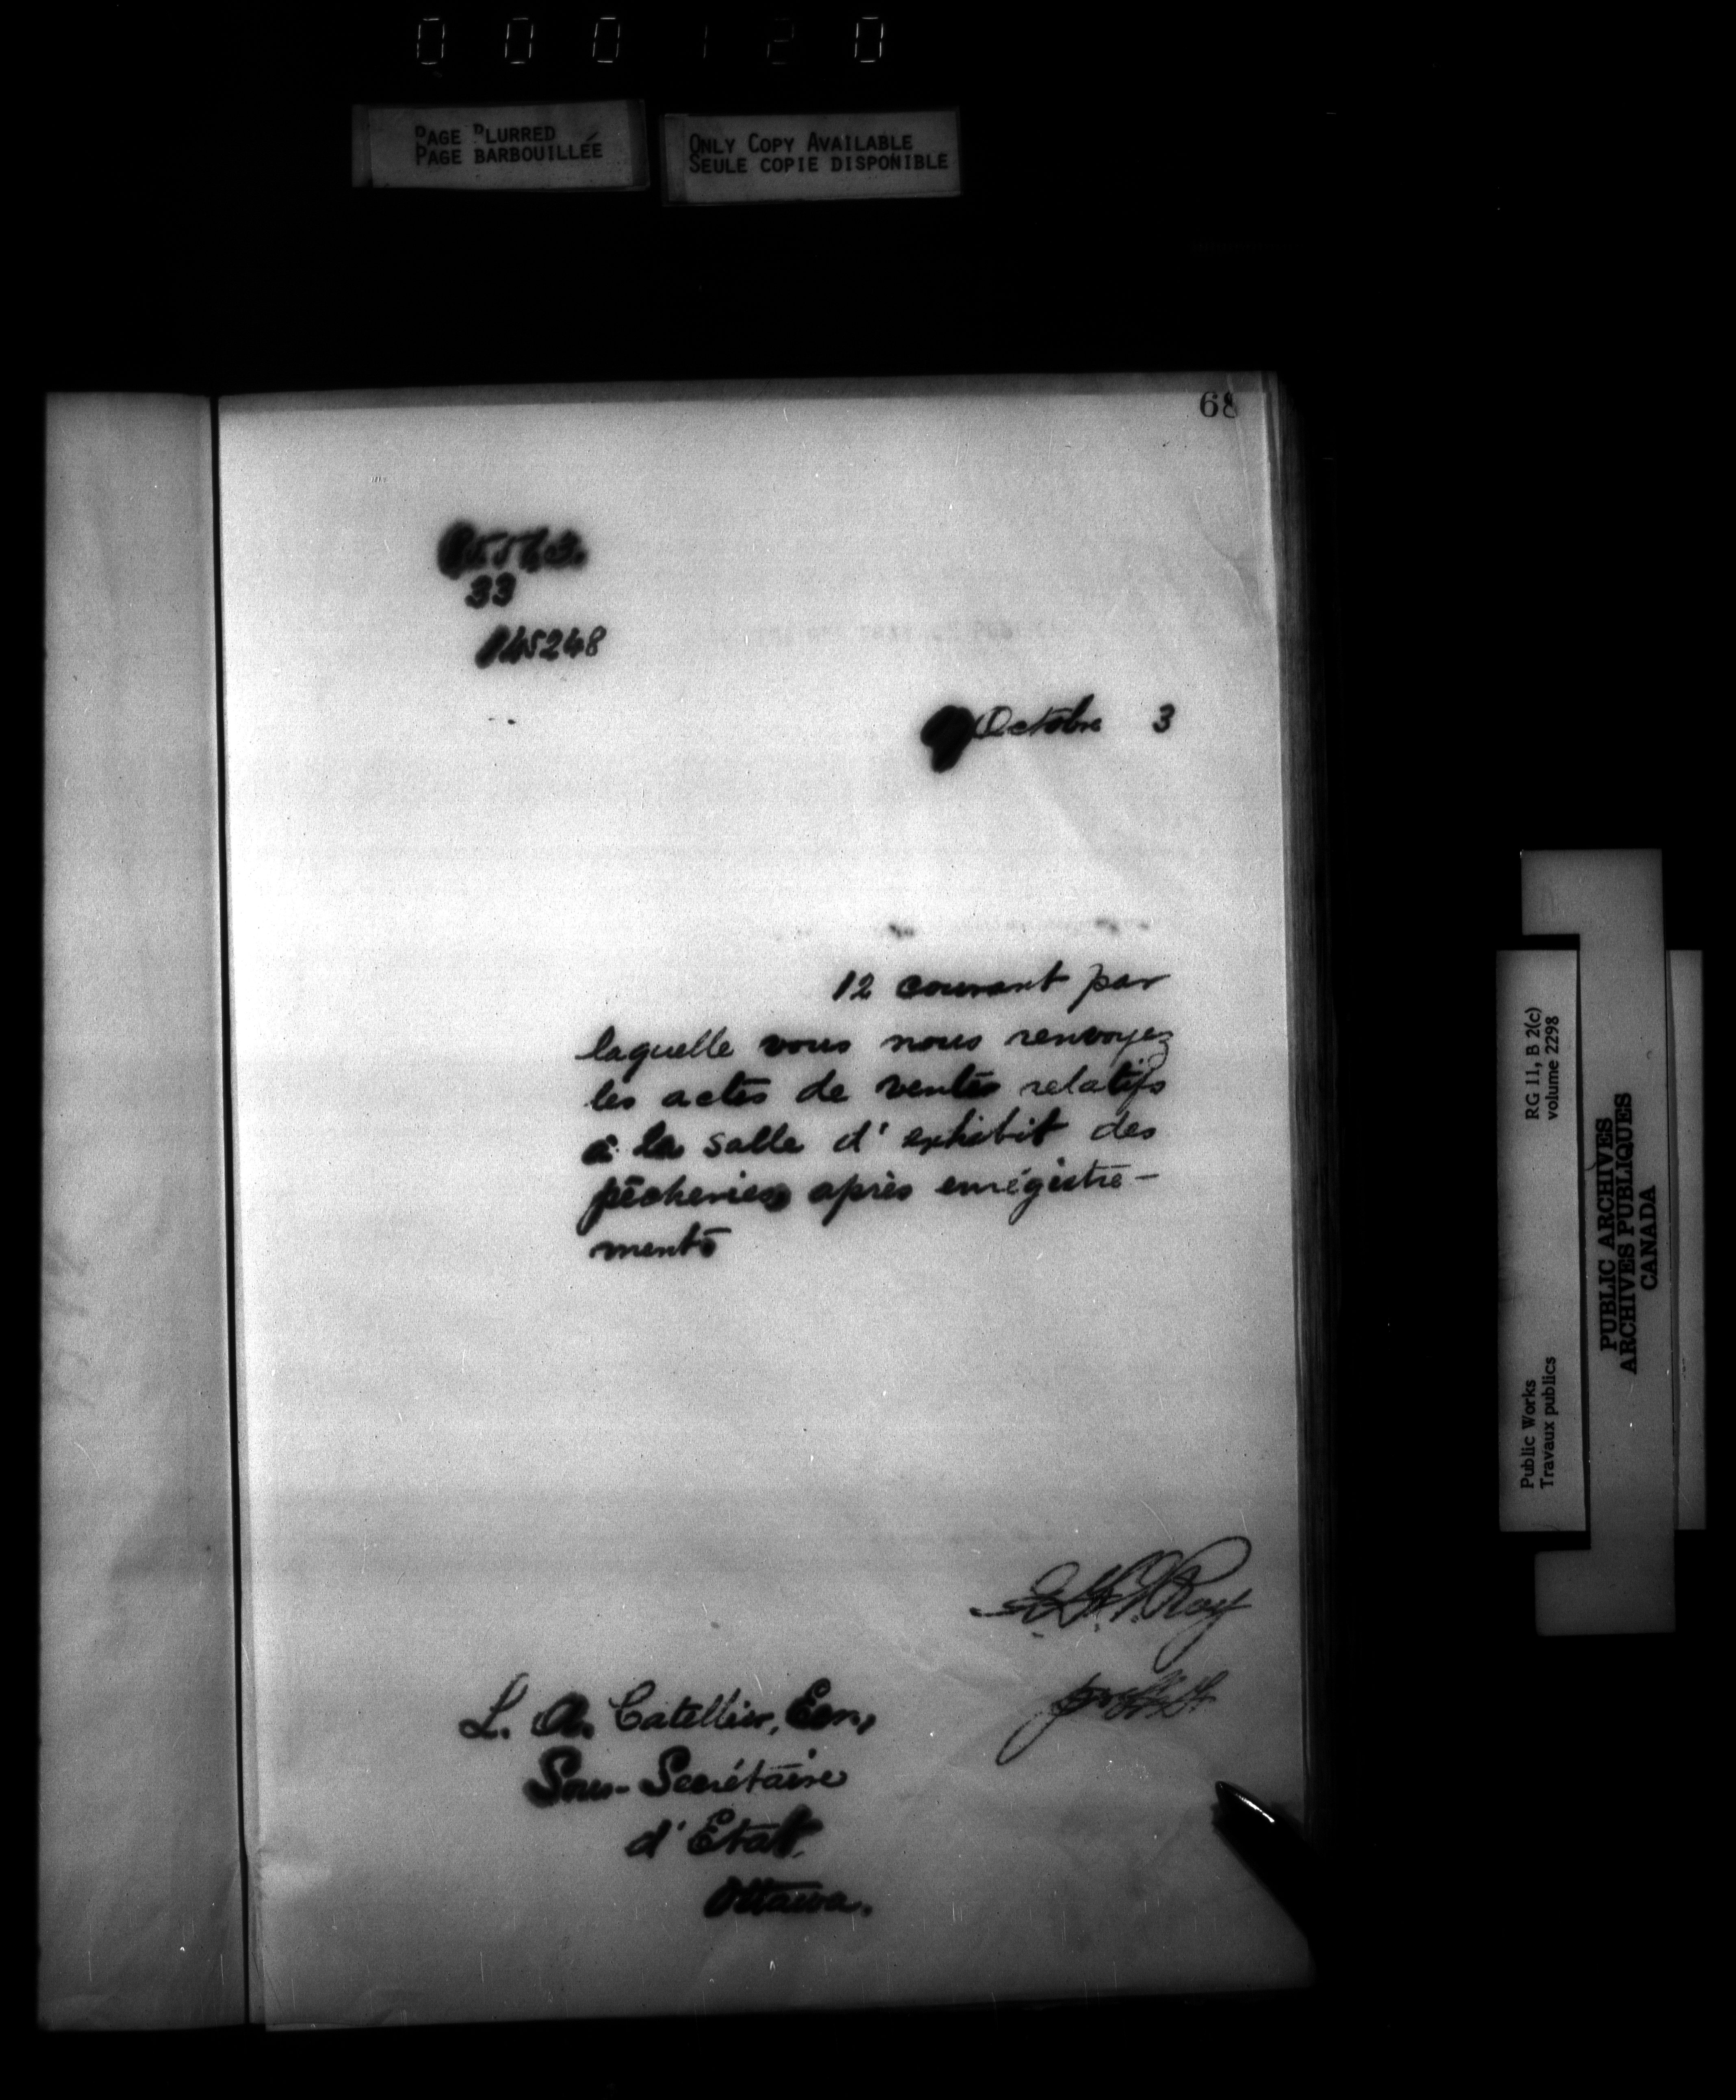 000120
PAGE BLURRED
PAGE BARBOUILLÉE
ONLY COPY AVAILABLE
SEULE COPIE DISPONIBLE
68
33
145248
Octobre 3
12 courant par
laquelle vous nous renvoyez
les actes de ventes relatifs
à la salle d'exhibit des
pêcheries après enrégistre-
ments
Roy
L. A. Catellier, Ecr.,
Sous-Secrétaire
d'Etat.
Ottawa.
RG 11, B 2(c)
volume 2298
Public Works
Travaux publics
PUBLIC ARCHIVES
ARCHIVES PUBLIQUES
CANADA